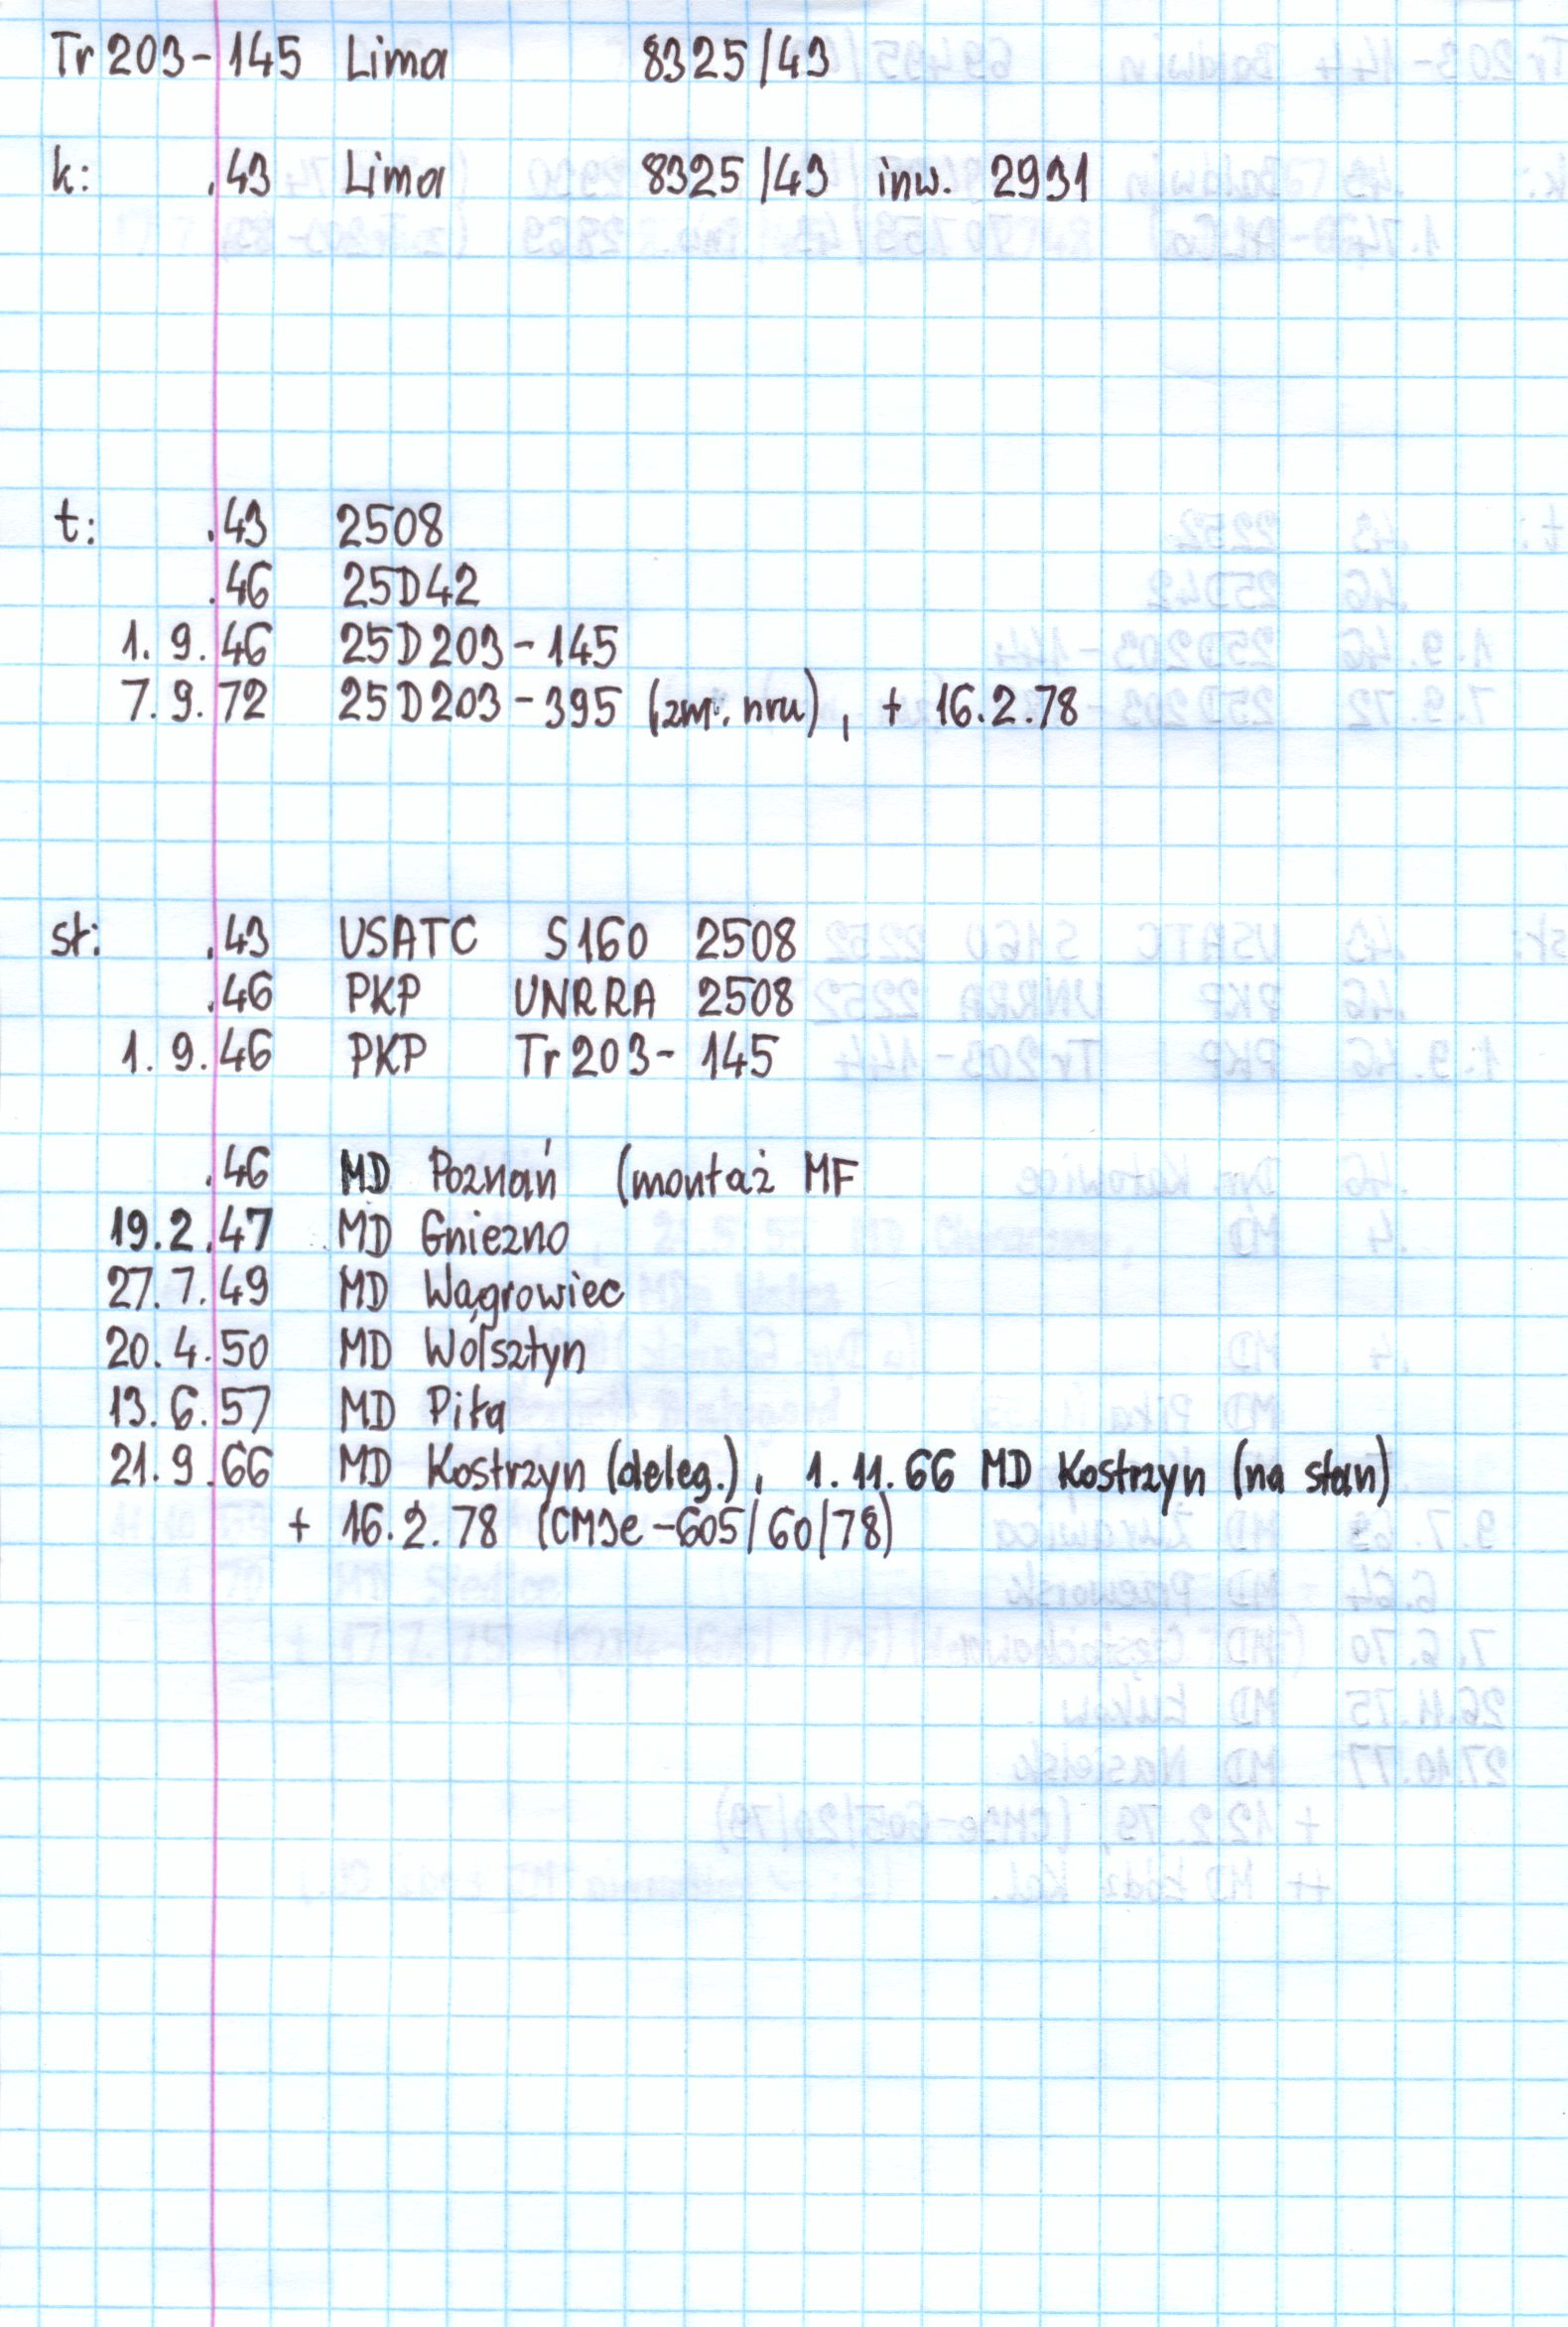 Tr 203-145 Lima 8325/43
k: .43 Lima 8325/43 inw. 2931
t: .43 2508
.46 25D42
1.9.46 25D203-145
7.9.72 25D203-395 (zm. nru), + 16.2.78
st: .43 USATC S160 2508
.46 PKP UNRRA 2508
1.9.46 PKP Tr203-145
.46 MD Poznań (montaż MF
19.2.47 MD Gniezno
27.7.49 MD Wągrowiec
20.4.50 MD Wolsztyn
13.6.57 MD Piła
21.9.66 MD Kostrzyn (deleg.), 1.11.66 MD Kostrzyn (na stan)
+ 16.2.78 (CM3e-605/60/78)